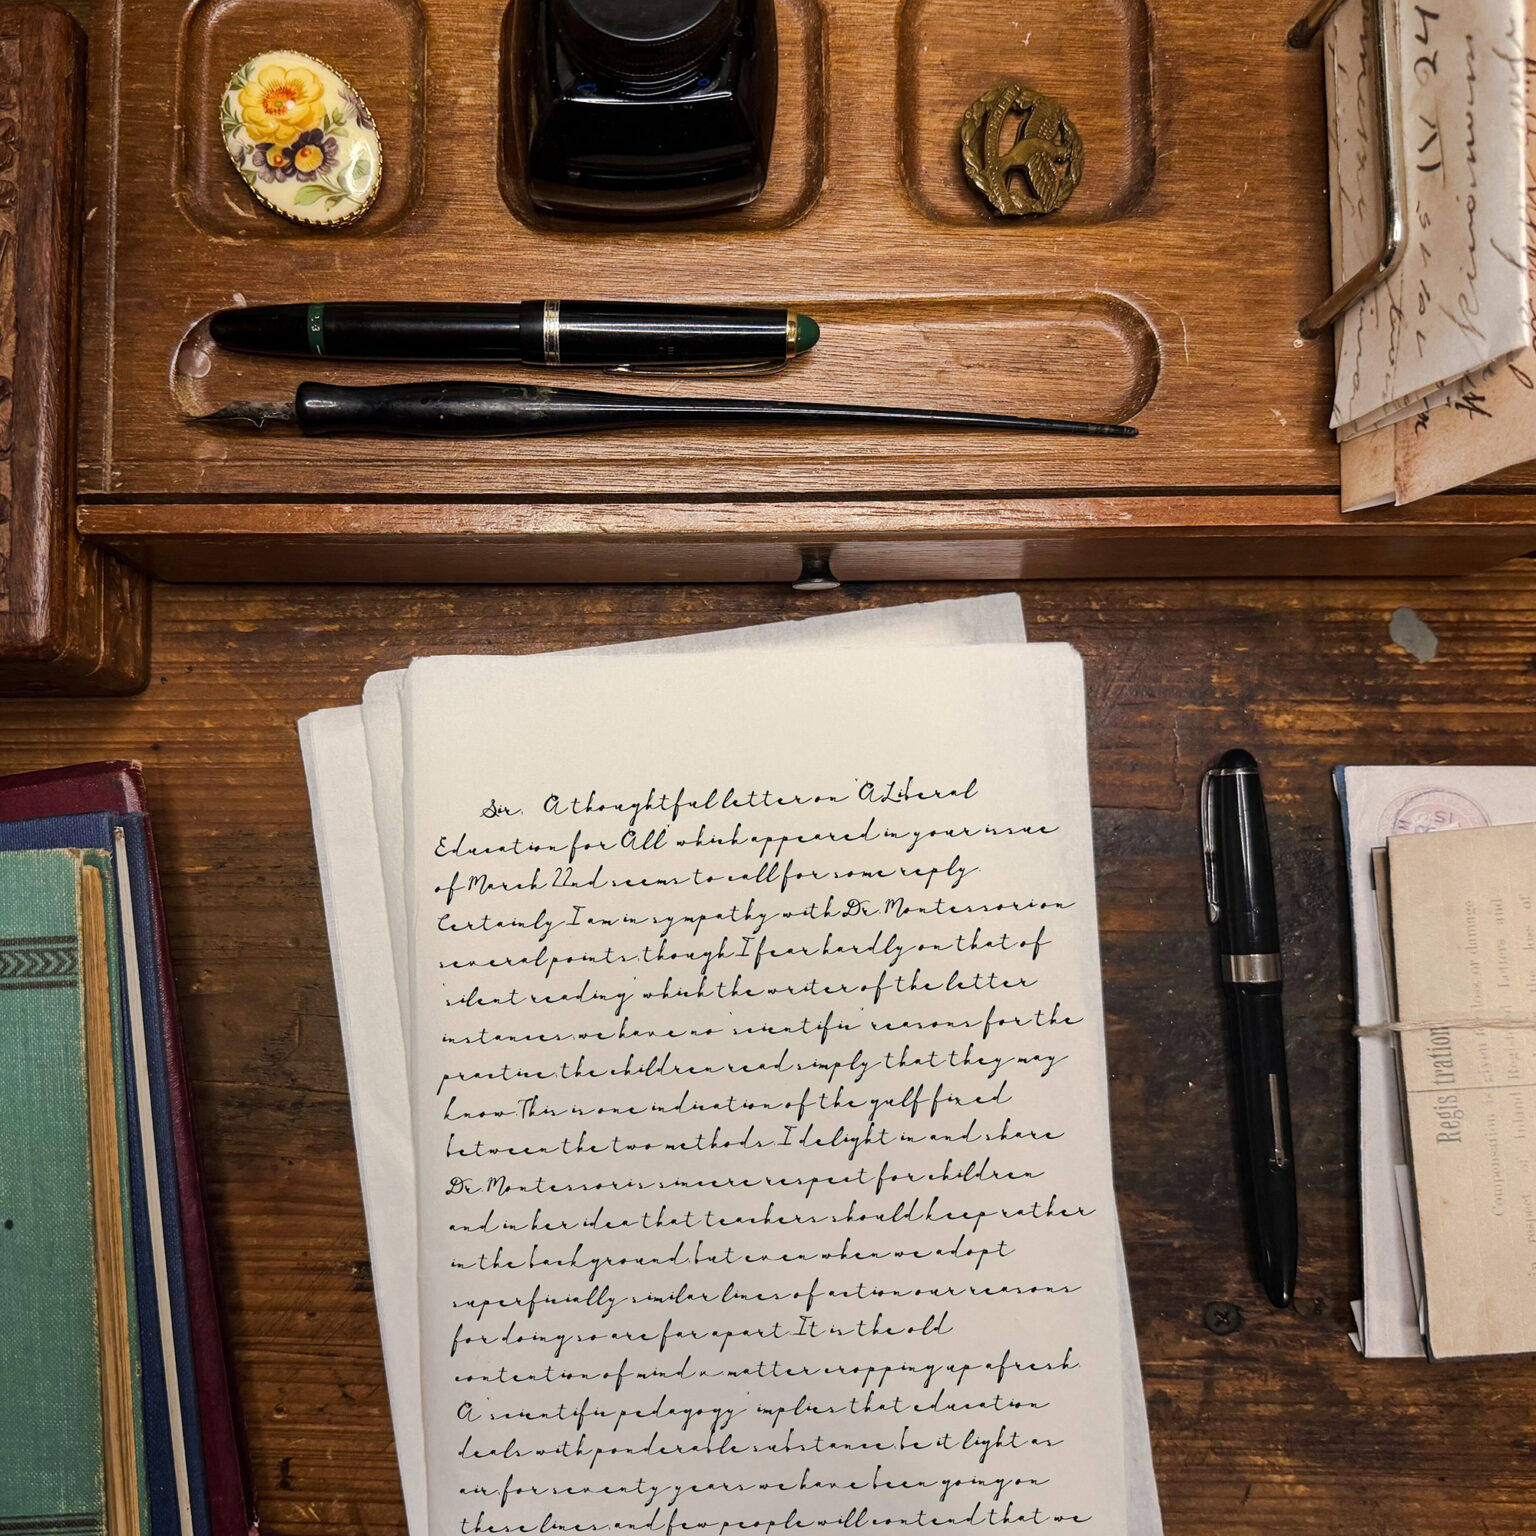 Sir, A thoughtful letter on 'A Liberal
Education for All' which appeared in your issue
of March 22nd seems to call for some reply.
Certainly I am in sympathy with Dr. Montessori on
several points, though I fear hardly on that of
'silent reading' which the writer of the letter
instances; we have no 'scientific' reasons for the
practice; the children read simply that they may
know. This is one indication of the gulf fixed
between the two methods. I delight in and share
Dr. Montessori's sincere respect for children
and in her idea that teachers should keep rather
in the background, but even when we adopt
superficially similar lines of action our reasons
for doing so are far apart. It is the old
contention of mind v. matter cropping up afresh.
A 'scientific pedagogy' implies that education
deals with ponderable substance, be it light as
air; for seventy years we have been going on
these lines, and few people will contend that we
Registration
Compensation is given loss or damage
respect of Inland Letters and
the loss of